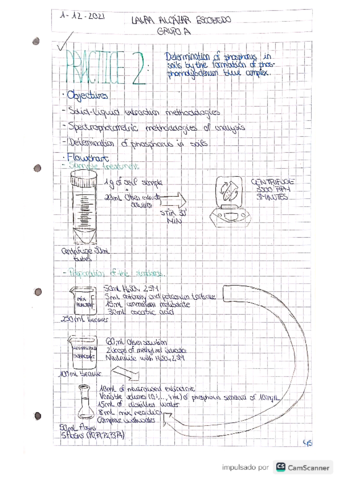 1-12-2021
LAURA ALCÁZAR ESCOBEDO
GRUPO A
PRACTICE 2:
Determination of phosphorus in
soils by the formation of phos-
phomolybdenum blue complex.
· Objectives
- Solid-Liquid extraction methodologies
- Spectrophotometric methodologies of analysis
- Determination of phosphorus in soils
· Flowchart
- Sample treatment
1g of soil sample
20mL Olsen
STIR 30
MIN
CENTRIFUGE
3000 RPM
3 MINUTES
Centrifuge 50mL
- Preparation of the
50mL H2SO4 2,5M
5mL antimony and potassium tartrate
15mL ammonium molybdate
30mL ascorbic acid
250mL beaker
60mL Olsen solution
2 drops of methyl
Neutralize with H2SO4 2,5M
100mL beaker
10mL of neutralized extractant
Variable volumes of phosphorus standard of 10mg/L
15mL of distilled water
8mL mix
Complete with water
50mL flasks
45
impulsado por CS CamScanner